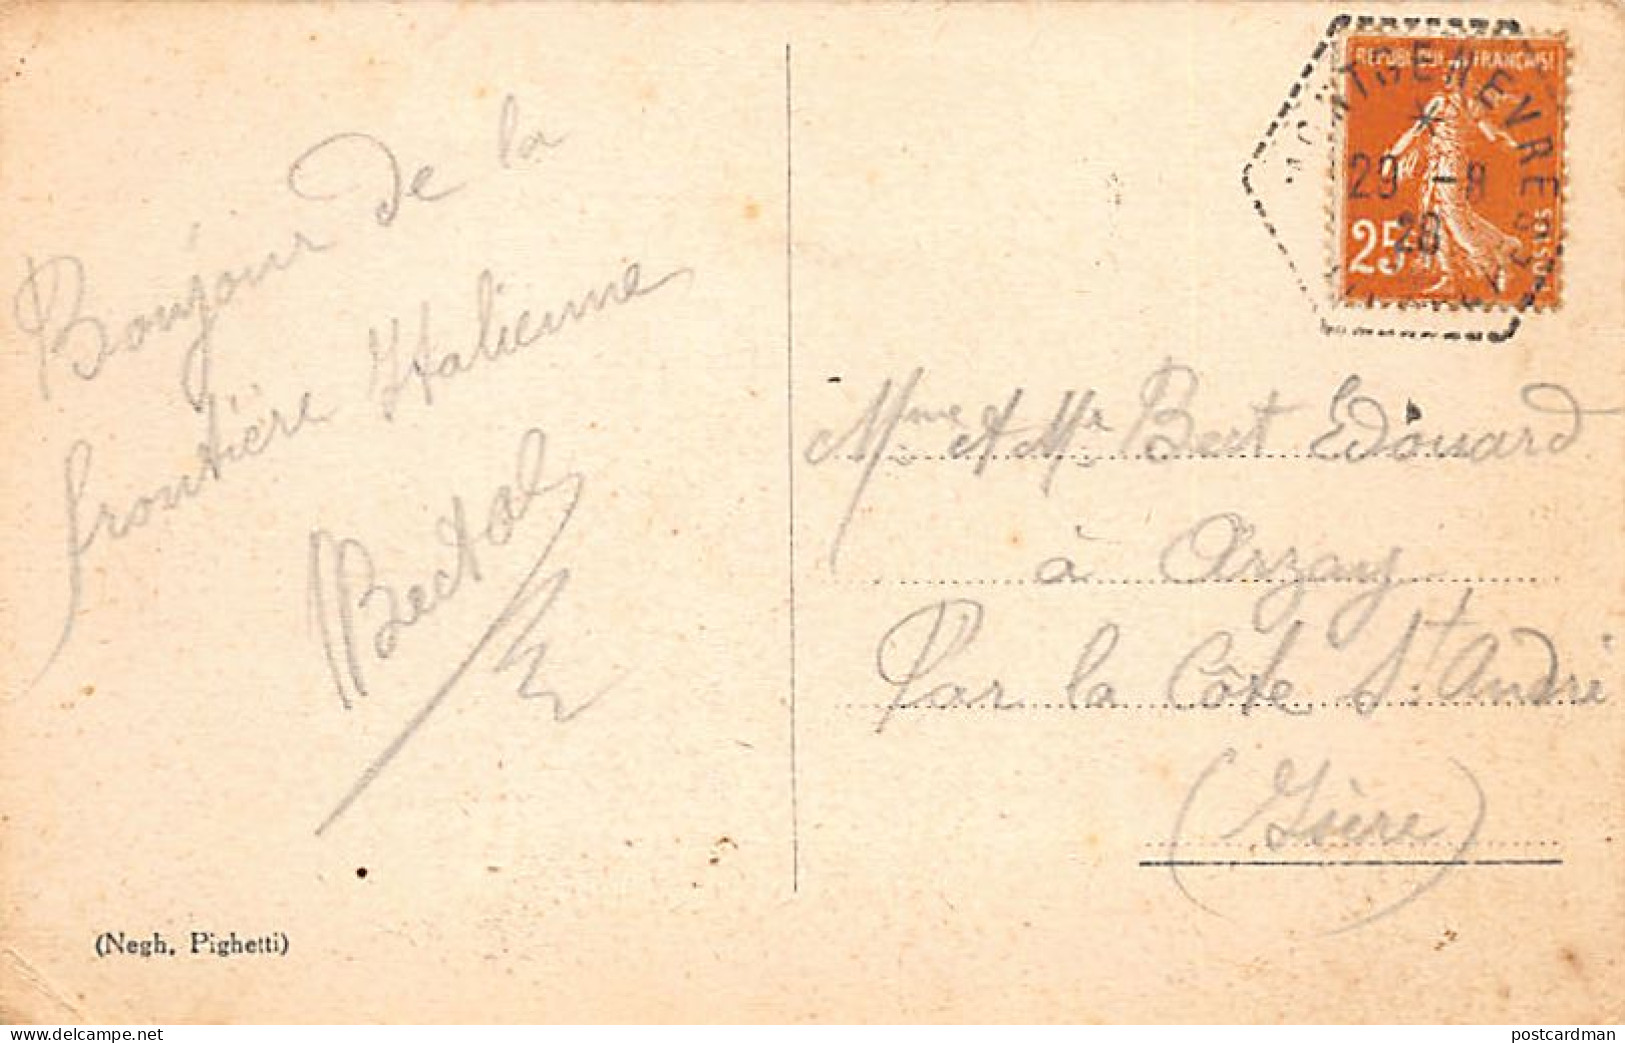 Bonjour de la
frontière Italienne
(Negh. Pighetti)
REPUBLIQUE FRANÇAISE
MONTGENEVRE
29 -8
28
25
POSTES
Mme & Mr Bert Edouard
à Arzay
Par la Côte St André
(Isère)
www.delcampe.net
postcardman